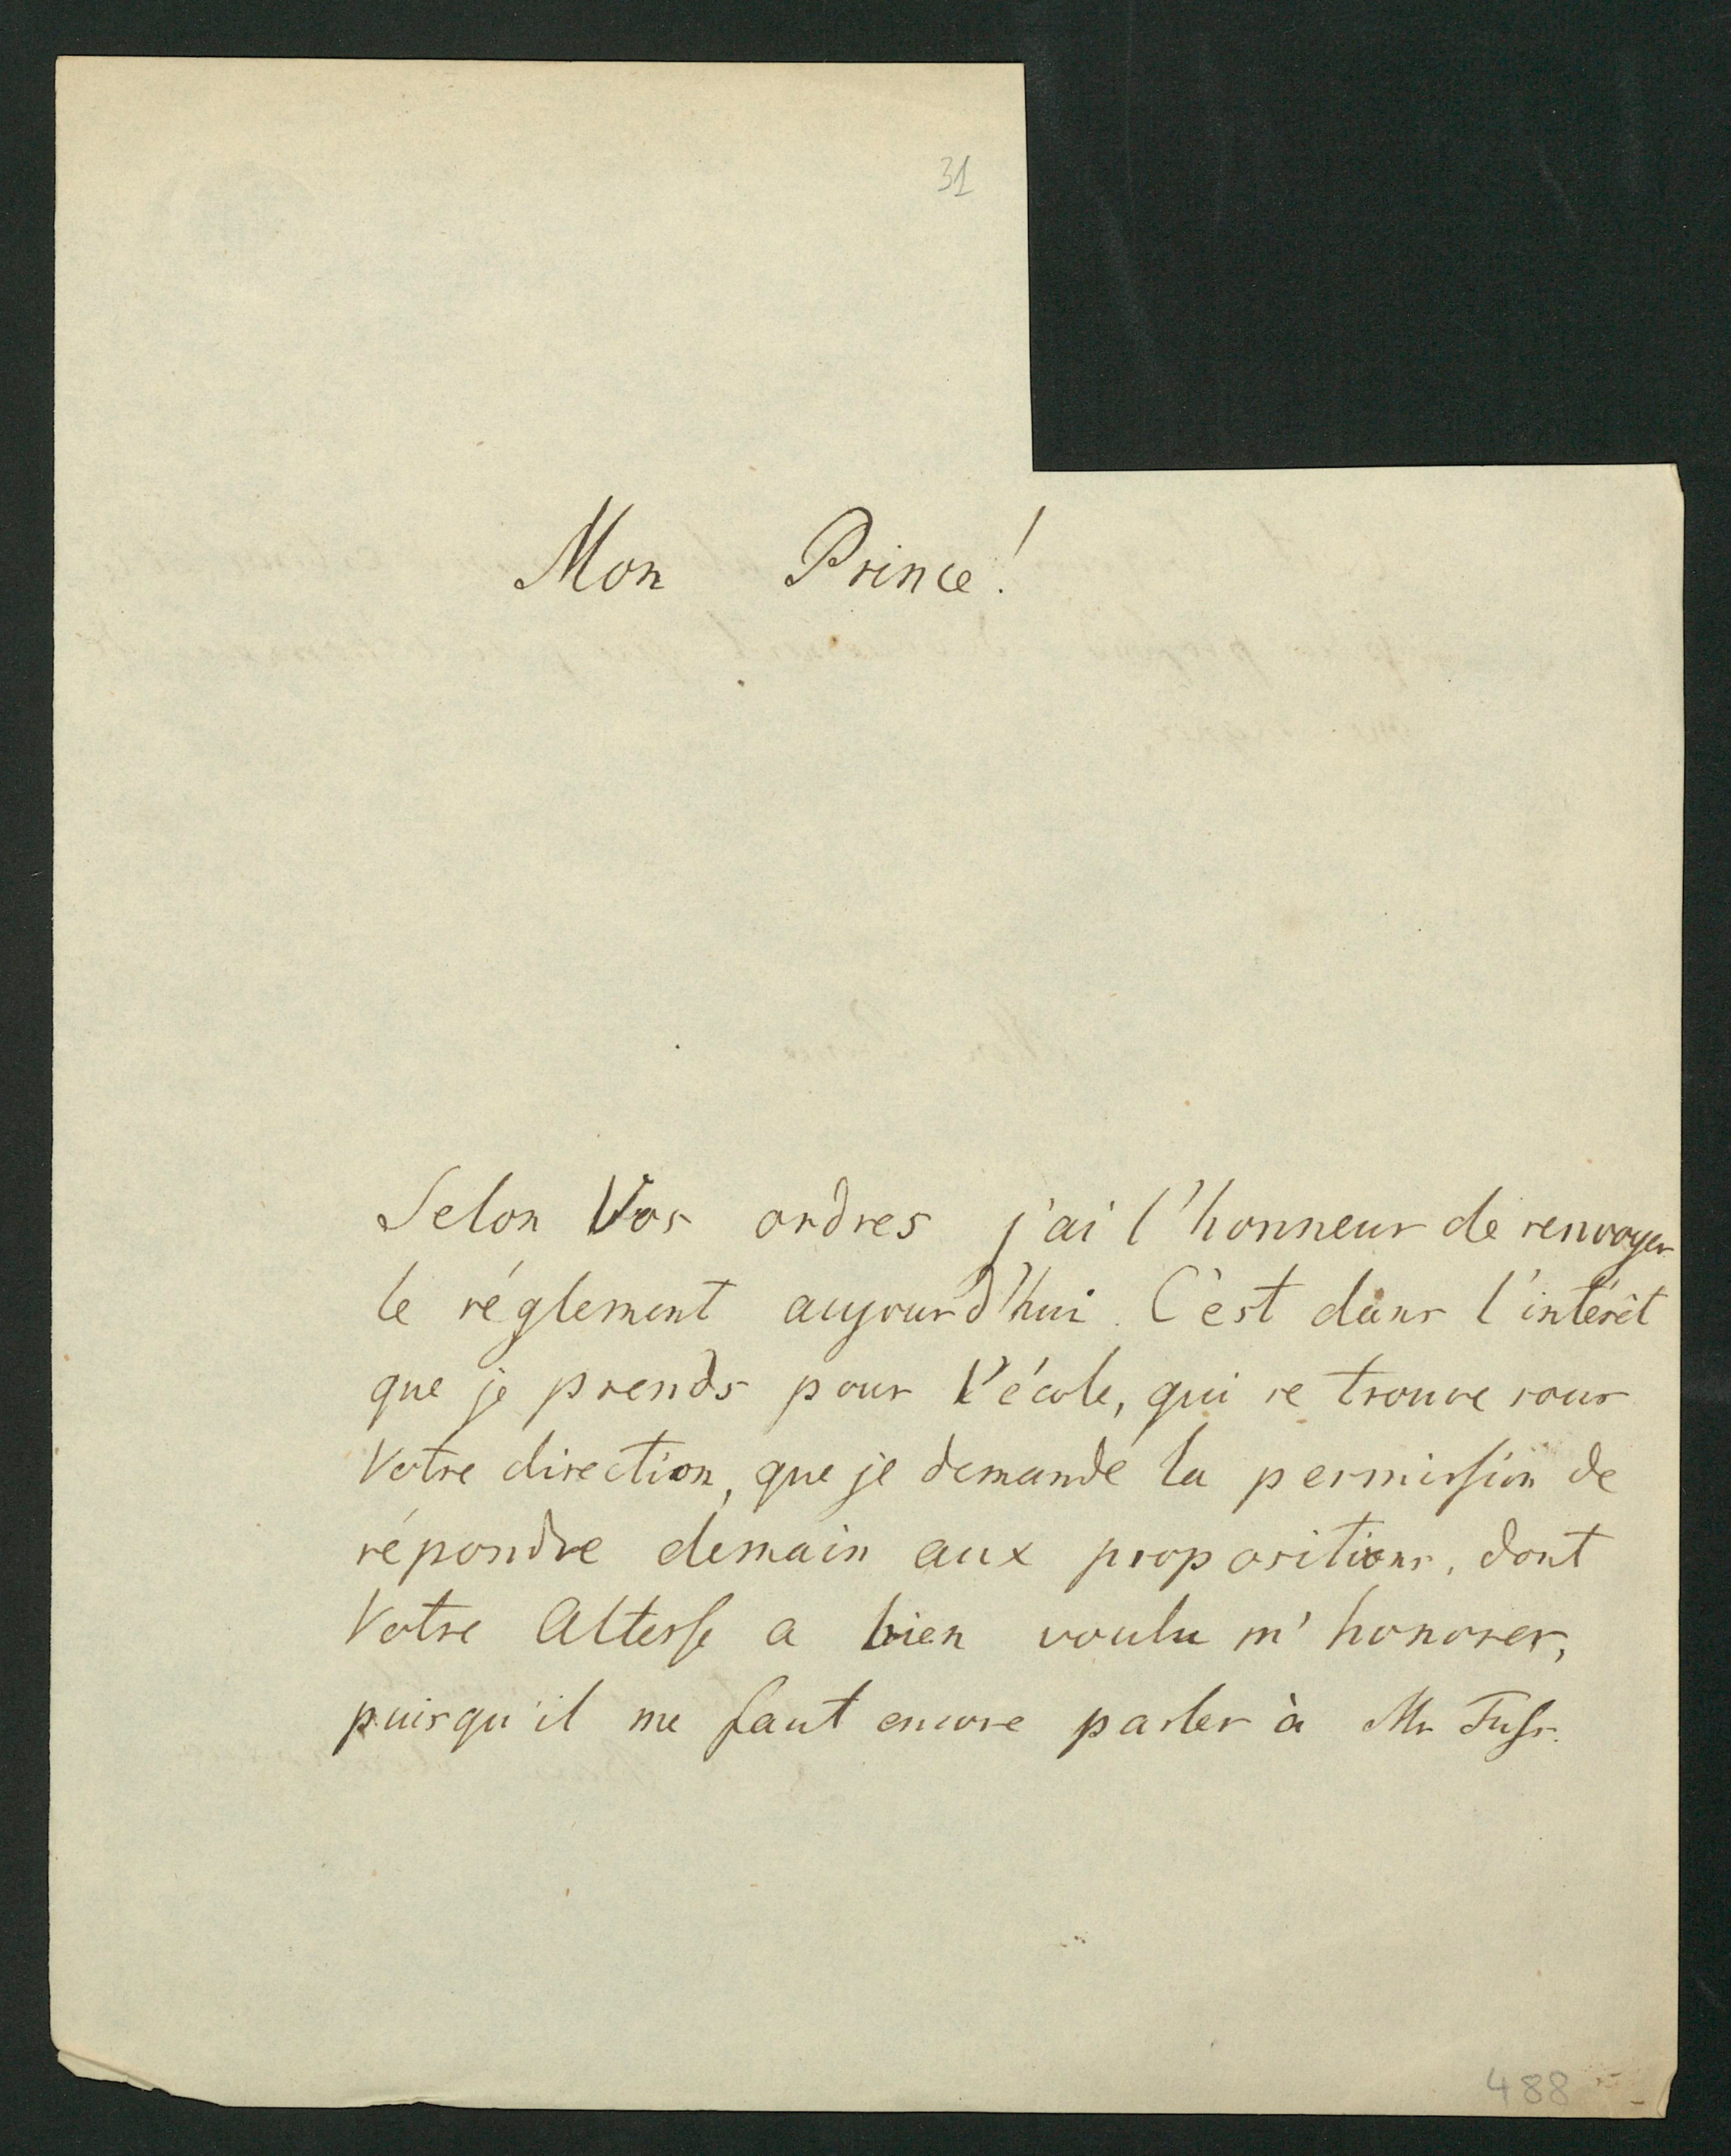 31
Mon Prince!
Selon Vos ordres j'ai l'honneur de renvoyer
le réglement aujourd'hui. C'est dans l'intérêt
que je prends pour l'école, qui se trouve sous
Votre direction, que je demande la permission de
répondre demain aux propositions, dont
Votre Altesse a bien voulu m'honorer,
puisqu'il me faut encore parler à Mr Fuss.
488